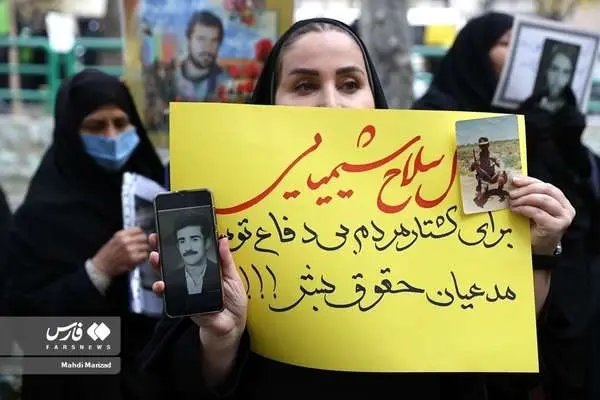 سلاح شیمیایی
برای کشتار مردم بی دفاع توسط
مدعیان حقوق بشر !!!
فارس
FARSNEWS
Mahdi Marizad